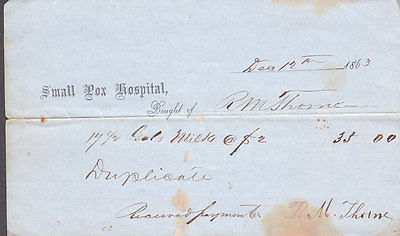 Dec 12th 1863
Small Pox Hospital,
Bought of R M Thorne
17 1/2 Gals Milk @ $2 35 00
Duplicate
Received payment R. M. Thorne